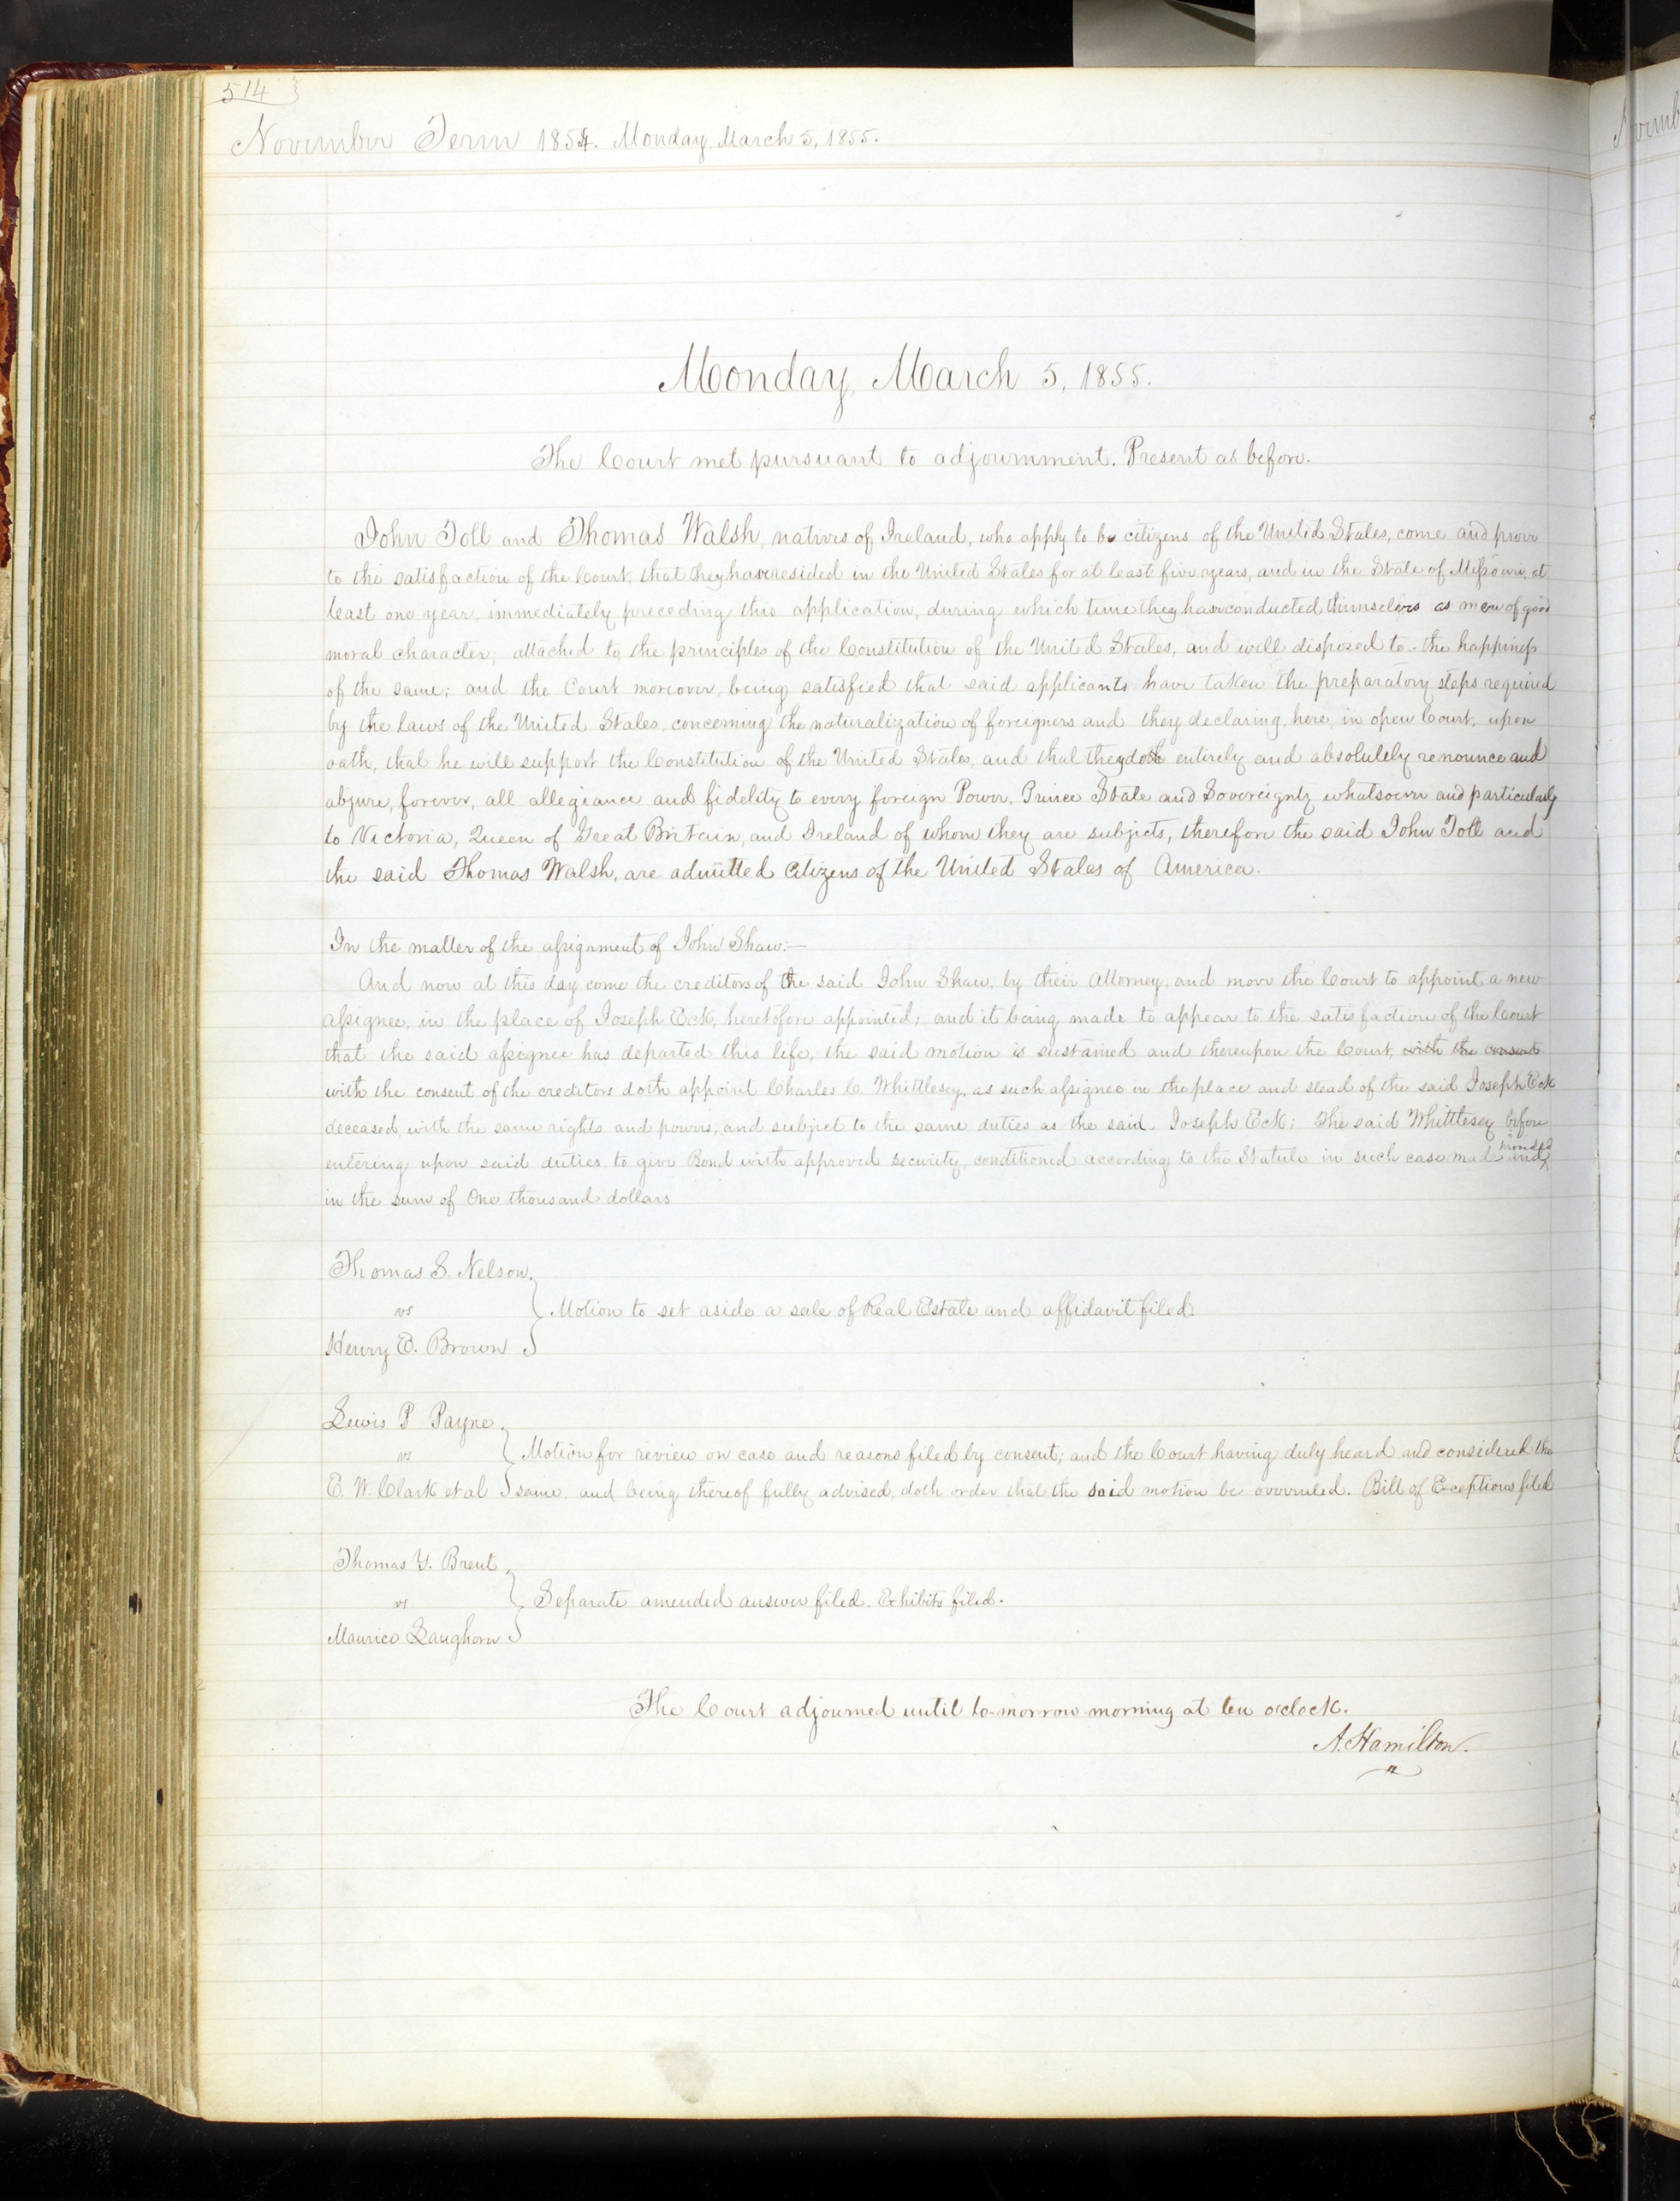 514
November Term 1854. Monday, March 5, 1855.
Monday, March 5, 1855.
The Court met pursuant to adjournment. Present as before.
John Toll and Thomas Walsh, natives of Ireland, who apply to be citizens of the United States, come and prove
to the satisfaction of the Court, that they have resided in the United States for at least five years, and in the State of Missouri, at
least one year, immediately preceding this application, during which time they have conducted themselves as men of good
moral character; attached to the principles of the Constitution of the United States, and well disposed to the happiness
of the same; and the Court moreover, being satisfied that said applicants have taken the preparatory steps required
by the laws of the United States, concerning the naturalization of foreigners and they declaring, here, in open Court, upon
oath, that he will support the Constitution of the United States, and that they doth entirely and absolutely renounce and
abjure, forever, all allegiance and fidelity to every foreign Power, Prince State and Sovereignty whatsoever and particularly
to Victoria, Queen of Great Britain, and Ireland of whom they are subjects, therefore the said John Toll and
the said Thomas Walsh, are admitted Citizens of the United States of America.
In the matter of the assignment of John Shaw:—
And now at this day come the creditors of the said John Shaw, by their attorney, and move the Court to appoint a new
assignee, in the place of Joseph Eck, heretofore appointed; and it being made to appear to the satisfaction of the Court
that the said assignee has departed this life, the said motion is sustained and thereupon the Court, with the consent
with the consent of the creditors doth appoint Charles C. Whittlesey, as such assignee in the place and stead of the said Joseph Eck
deceased, with the same rights and powers, and subject to the same duties as the said Joseph Eck; The said Whittlesey before
entering upon said duties to give Bond with approved security, conditioned according to the Statute in such case mad
in the sum of One thousand dollars
Thomas S. Nelson
vs
Henry E. Brown
Motion to set aside a sale of Real Estate and affidavit filed.
Lewis P Payne
vs
E. W. Clark et al
Motion for review on case and reasons filed by consent; and the Court having duly heard and considered the
same, and being thereof fully advised, doth order that the said motion be overruled. Bill of Exceptions filed
Thomas Y. Brent
vs
Maurice Langhorn
Separate amended answer filed. Exhibits filed.
The Court adjourned until to-morrow morning at ten o'clock.
A. Hamilton.